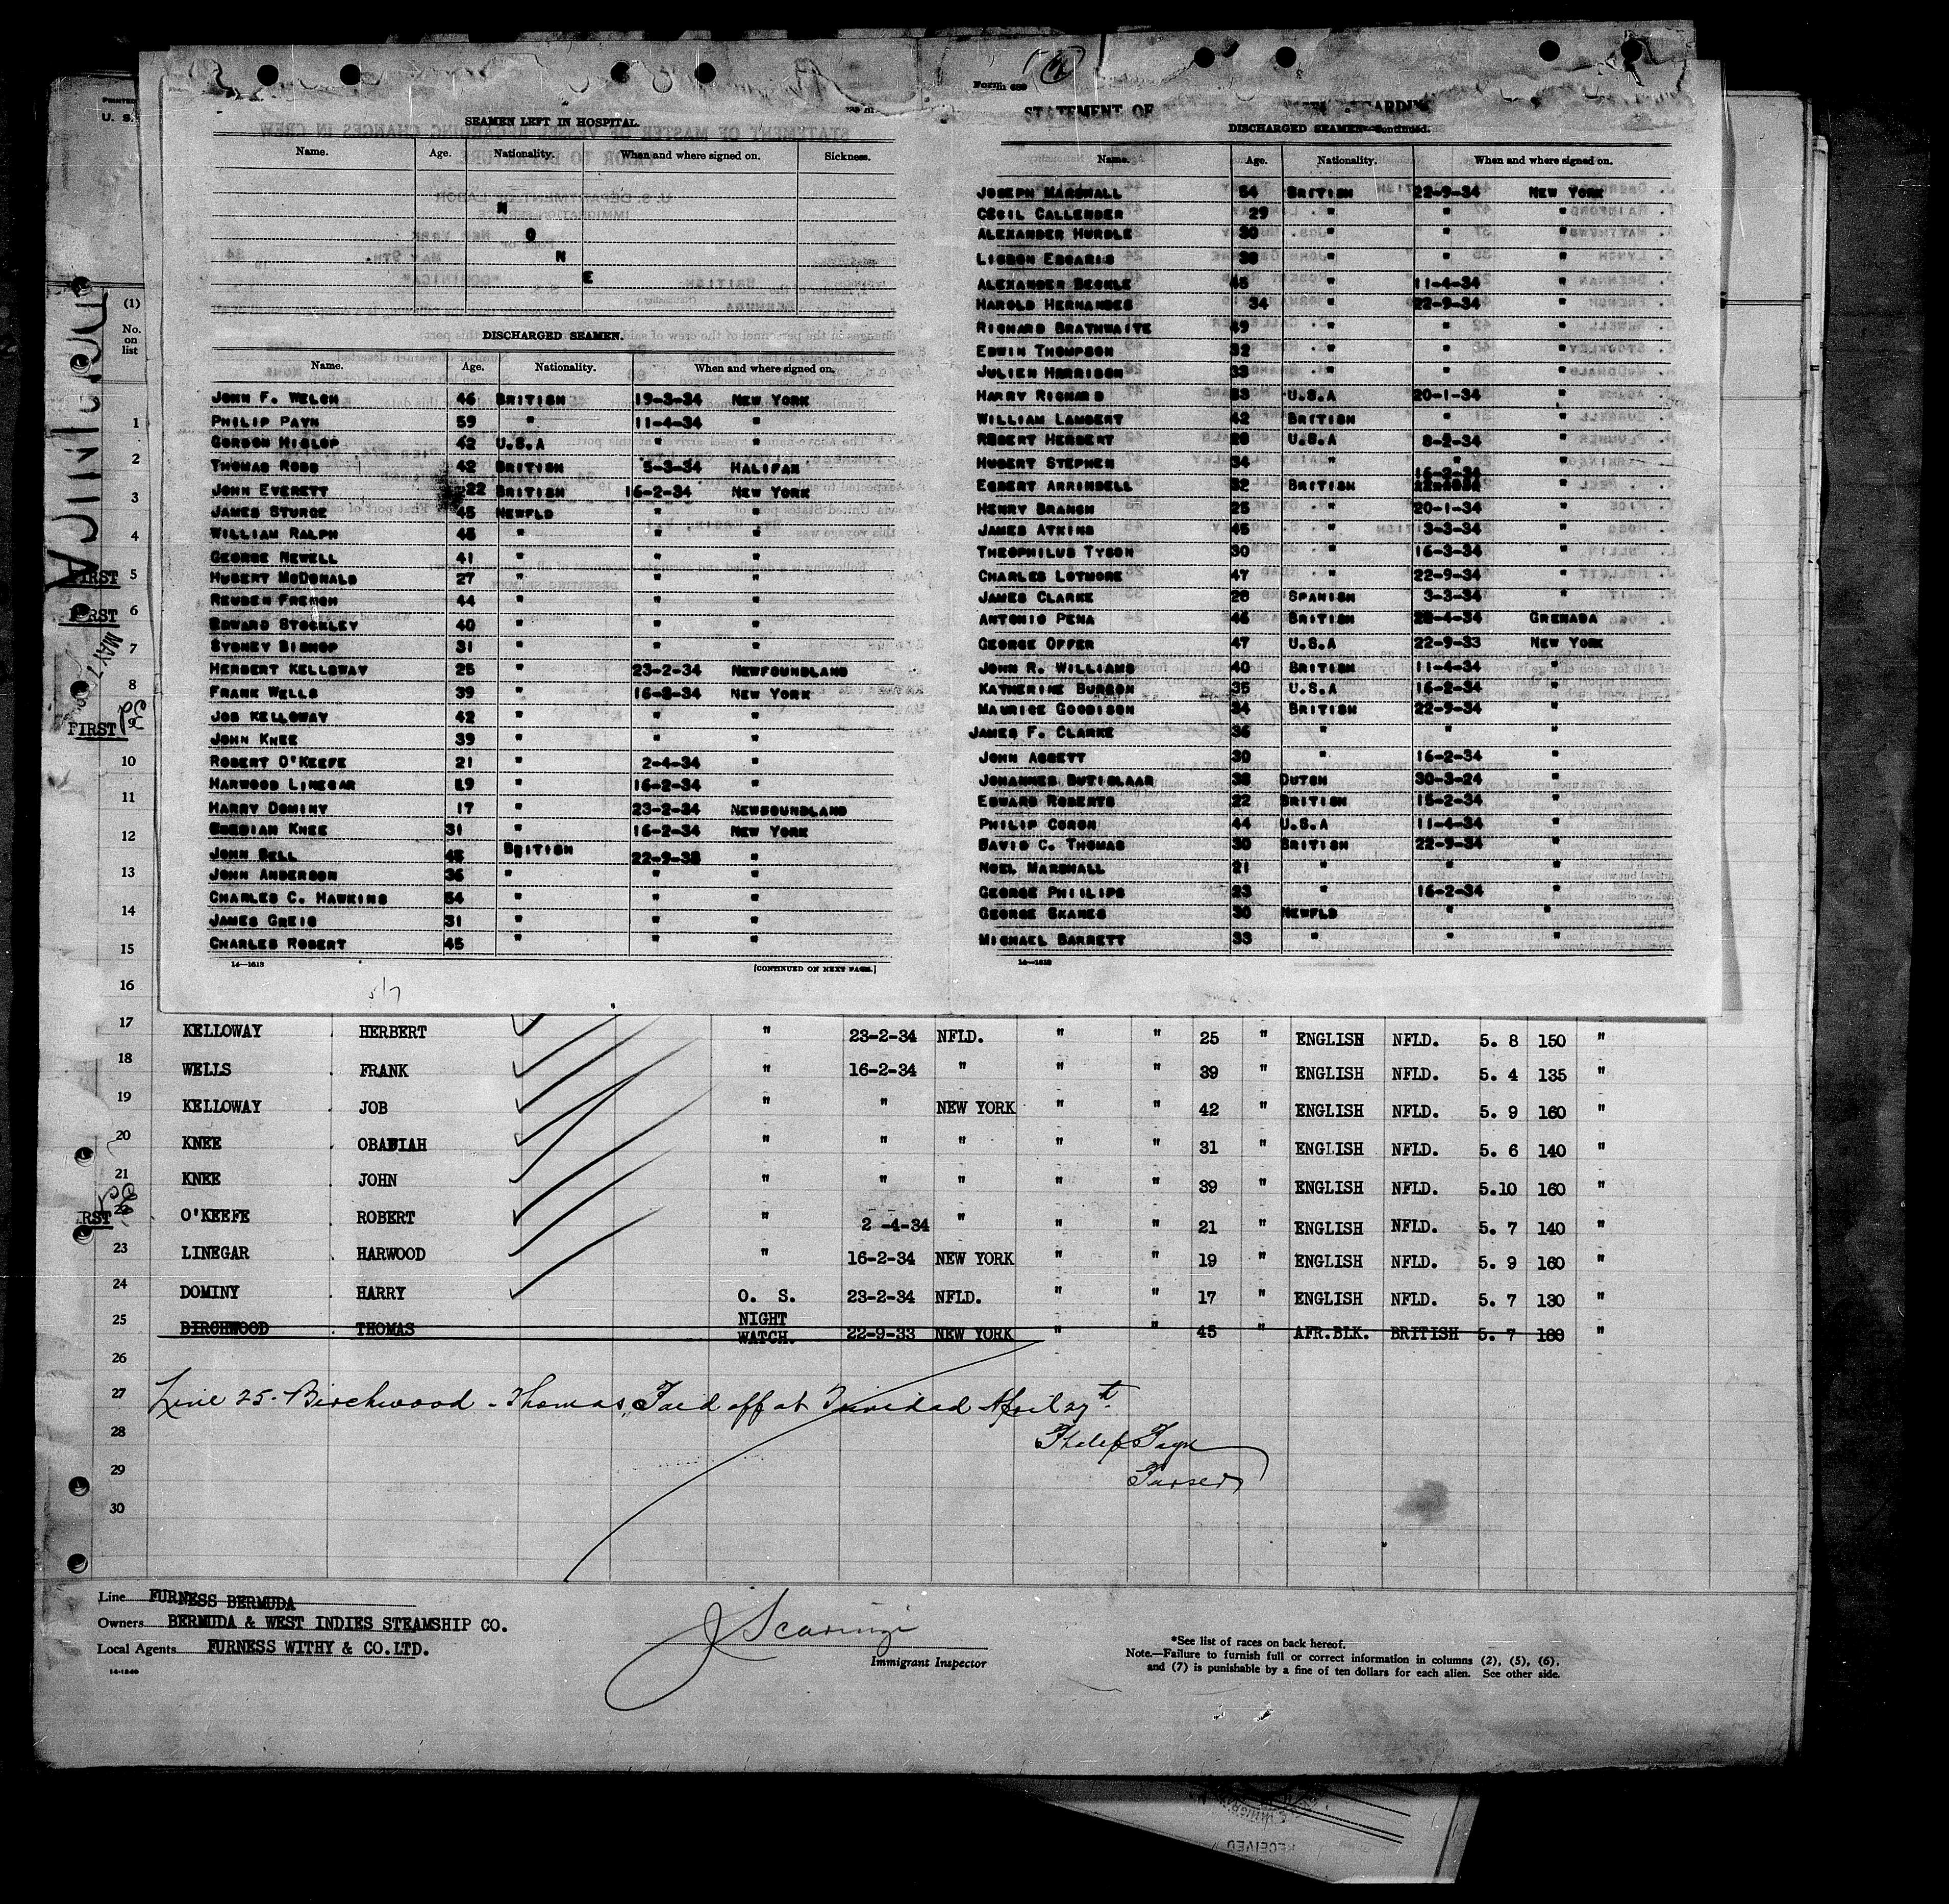 SEAMEN LEFT IN HOSPITAL.
Name. Age. Nationality. When and where signed on. Sickness.
N
O
N
E
DISCHARGED SEAMEN.
Name. Age. Nationality. When and where signed on.
JOHN F. WELCH 46 BRITISH 19-3-34 NEW YORK
PHILIP PAYN 59 " 11-4-34 "
GORDON HISLOP 42 U.S.A " "
THOMAS ROSS 42 BRITISH 5-3-34 HALIFAX
JOHN EVERETT 22 BRITISH 16-2-34 NEW YORK
JAMES STURGE 45 NEWFLD " "
WILLIAM RALPH 45 " " "
GEORGE NEWELL 41 " " "
HUBERT McDONALD 27 " " "
REUBEN FRENCH 44 " " "
EDWARD STOCKLEY 40 " " "
SYDNEY BISHOP 31 " " "
HERBERT KELLOWAY 25 " 23-2-34 NEWFOUNDLAND
FRANK WELLS 39 " 16-2-34 NEW YORK
JOB KELLOWAY 42 " " "
JOHN KNEE 39 " " "
ROBERT O'KEEFE 21 " 2-4-34 "
HARWOOD LINEGAR 19 " 16-2-34 "
HARRY DOMINY 17 " 23-2-34 NEWFOUNDLAND
OBEDIAH KNEE 31 " 16-2-34 NEW YORK
JOHN BELL 45 BRITISH 22-9-33 "
JOHN ANDERSON 36 " " "
CHARLES C. HAWKINS 54 " " "
JAMES GREIG 31 " " "
CHARLES ROBERT 45 " " "
14—1518 [CONTINUED ON NEXT PAGE.]
Form 689
STATEMENT OF
DISCHARGED SEAMEN—Continued.
Name. Age. Nationality. When and where signed on.
JOSEPH MARSHALL 54 BRITISH 22-9-34 NEW YORK
CECIL CALLENDER 29 " " "
ALEXANDER HURDLE 30 " " "
LISBON ESCARIS 38 " " "
ALEXANDER BECKLE 45 " 11-4-34 "
HAROLD HERNANDES 34 " 22-9-34 "
RICHARD BRATHWAITE 49 " " "
EDWIN THOMPSON 32 " " "
JULIEN HARRISON 33 " " "
HARRY RICHARD 53 U.S.A 20-1-34 "
WILLIAM LAMBERT 42 BRITISH " "
ROBERT HERBERT 28 U.S.A 8-2-34 "
HUBERT STEPHEN 34 " " "
EGBERT ARRINDELL 32 BRITISH 16-2-34 "
HENRY BRANCH 25 " 20-1-34 "
JAMES ATKINS 45 " 3-3-34 "
THEOPHILUS TYSON 30 " 16-3-34 "
CHARLES LOTMORE 47 " 22-9-34 "
JAMES CLARKE 28 SPANISH 3-3-34 "
ANTONIO PENA 46 BRITISH 28-4-34 GRENADA
GEORGE OFFER 47 U.S.A 22-9-33 NEW YORK
JOHN R. WILLIAMS 40 BRITISH 11-4-34 "
KATHERINE BURSON 35 U.S.A 16-2-34 "
MAURICE GOODISON 34 BRITISH 22-9-34 "
JAMES F. CLARKE 36 " "
JOHN ABBETT 30 " 16-2-34 "
JOHANNES BUTISLAAR 38 DUTCH 30-3-24 "
EDWARD ROBERTS 22 BRITISH 15-2-34 "
PHILIP CORON 44 U.S.A 11-4-34 "
DAVID C. THOMAS 30 BRITISH 22-9-34 "
NOEL MARSHALL 21 " " "
GEORGE PHILLIPS 23 " 16-2-34 "
GEORGE SKANES 30 NEWFLD " "
MICHAEL BARRETT 33 " " "
14—1518
PRINTED
U. S.
DOMINICA
MAY 7
(1)
No.
on
list
1
2
3
4
FIRST 5
FIRST 6
7
8
FIRST
10
11
12
13
14
15
16
5/7
17 KELLOWAY HERBERT " 23-2-34 NFLD. " " 25 " ENGLISH NFLD. 5. 8 150 "
18 WELLS FRANK " 16-2-34 " " " 39 " ENGLISH NFLD. 5. 4 135 "
19 KELLOWAY JOB " " NEW YORK " " 42 " ENGLISH NFLD. 5. 9 160 "
20 KNEE OBADIAH " " " " " 31 " ENGLISH NFLD. 5. 6 140 "
21 KNEE JOHN " " " " " 39 " ENGLISH NFLD. 5.10 160 "
22 O'KEEFE ROBERT " 2 -4-34 " " " 21 " ENGLISH NFLD. 5. 7 140 "
23 LINEGAR HARWOOD " 16-2-34 NEW YORK " " 19 " ENGLISH NFLD. 5. 9 160 "
24 DOMINY HARRY O. S. 23-2-34 NFLD. " " 17 " ENGLISH NFLD. 5. 7 130 "
25 BIRCHWOOD THOMAS NIGHT WATCH. 22-9-33 NEW YORK " " 45 " AFR.BLK. BRITISH 5. 7 180 "
26
27 Line 25. Birchwood - Thomas, Paid off at Trinidad April 27th
28 Philip Payn
29 Purser
30
Line FURNESS BERMUDA
Owners BERMUDA & WEST INDIES STEAMSHIP CO.
Local Agents FURNESS WITHY & CO.LTD.
14-1240
J Scaringi
Immigrant Inspector
*See list of races on back hereof.
Note.—Failure to furnish full or correct information in columns (2), (5), (6),
and (7) is punishable by a fine of ten dollars for each alien. See other side.
RECEIVED